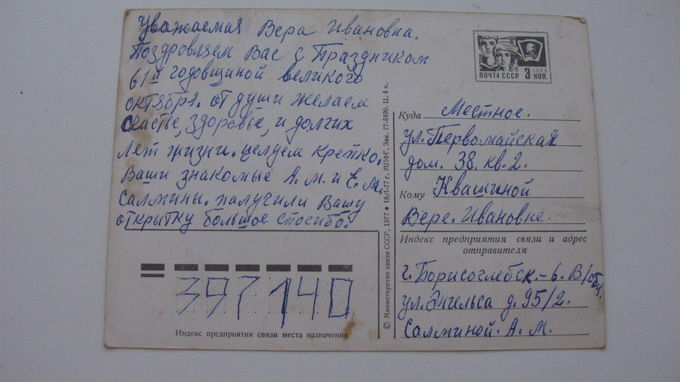 Уважаемая Вера Ивановна.
Поздровляем Вас с Праздником
61й годовщиной великого
октября. от души желаем
счастье, здоровье, и долгих
лет жизни. целуем крепко.
Ваши знакомые А. М. и Е. М.
Салмины. палучили Вашу
открытку большое спосибо.
ПОЧТА СССР 3 КОП.
Куда Местное.
ул. Первомайская
дом. 38. кв. 2.
Кому Квашниной
Вере. Ивановне.
Индекс предприятия связи и адрес
отправителя
г. Борисоглебск.-6. В/обл.
ул. Энгельса д. 95/2.
Салминой. А. М.
397140
Индекс предприятия связи места назначения
© Министерство связи СССР, 1977 • 18/I-77 г. МПФГ. Зак. 77-5899. Ц. 4 к.